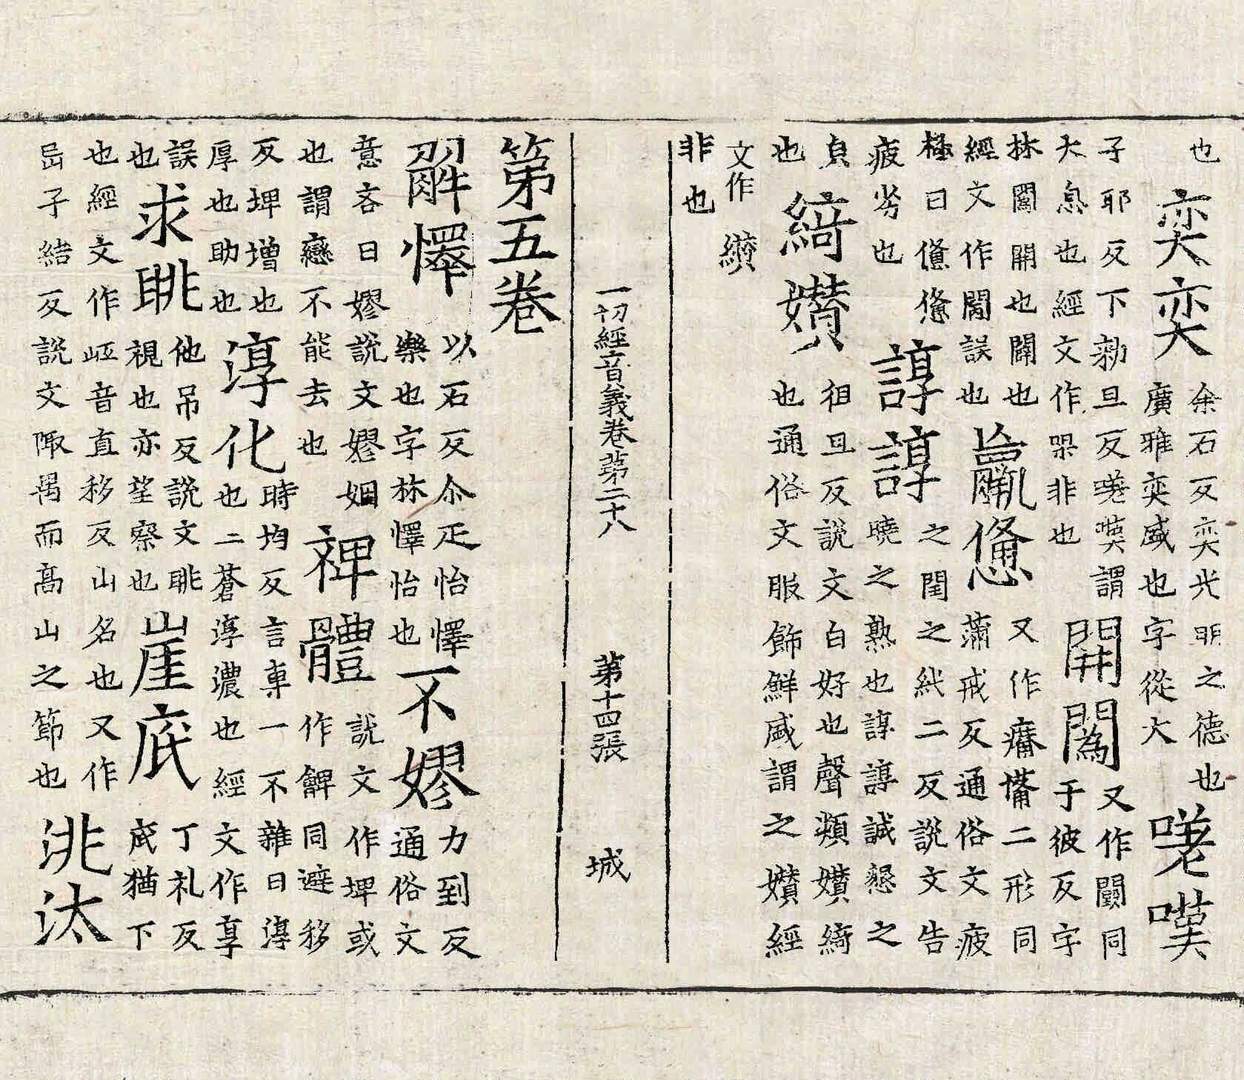 也奕奕余石反奕光明之德也廣雅奕盛也字從大嘆
子耶反下勑旦反謂大息也經文作罘非也開闊又作闢同于彼反字
林闊開也闢也經文作閪誤也羸憊又作二形同蒲戒反通俗文疲
極曰憊憊疲劣也諄諄之閏之純二反說文告曉之熟也諄諄誠懇之
皃也綺孏徂旦反說文白好也聲類孏綺也通俗文服飾鮮盛謂之孏經
文作纘非也
一切經音義卷第二十八 第十四張 城
第五卷
解懌以石反尒疋怡懌樂也字林懌怡也不嫪力到反通俗文
意吝曰嫪說文嫪姻也謂戀不能去也裨體說文作埤或作䚜同避移
反埤增也厚也助也淳化時均反言專一不雜曰淳也二蒼淳濃也經文作享
誤也求眺他吊反說文眺視也亦望察也崖底丁礼反底猶下
也經文作㟁音直移反山名也又作嵒子結反說文陬隅而高山之節也洮汰